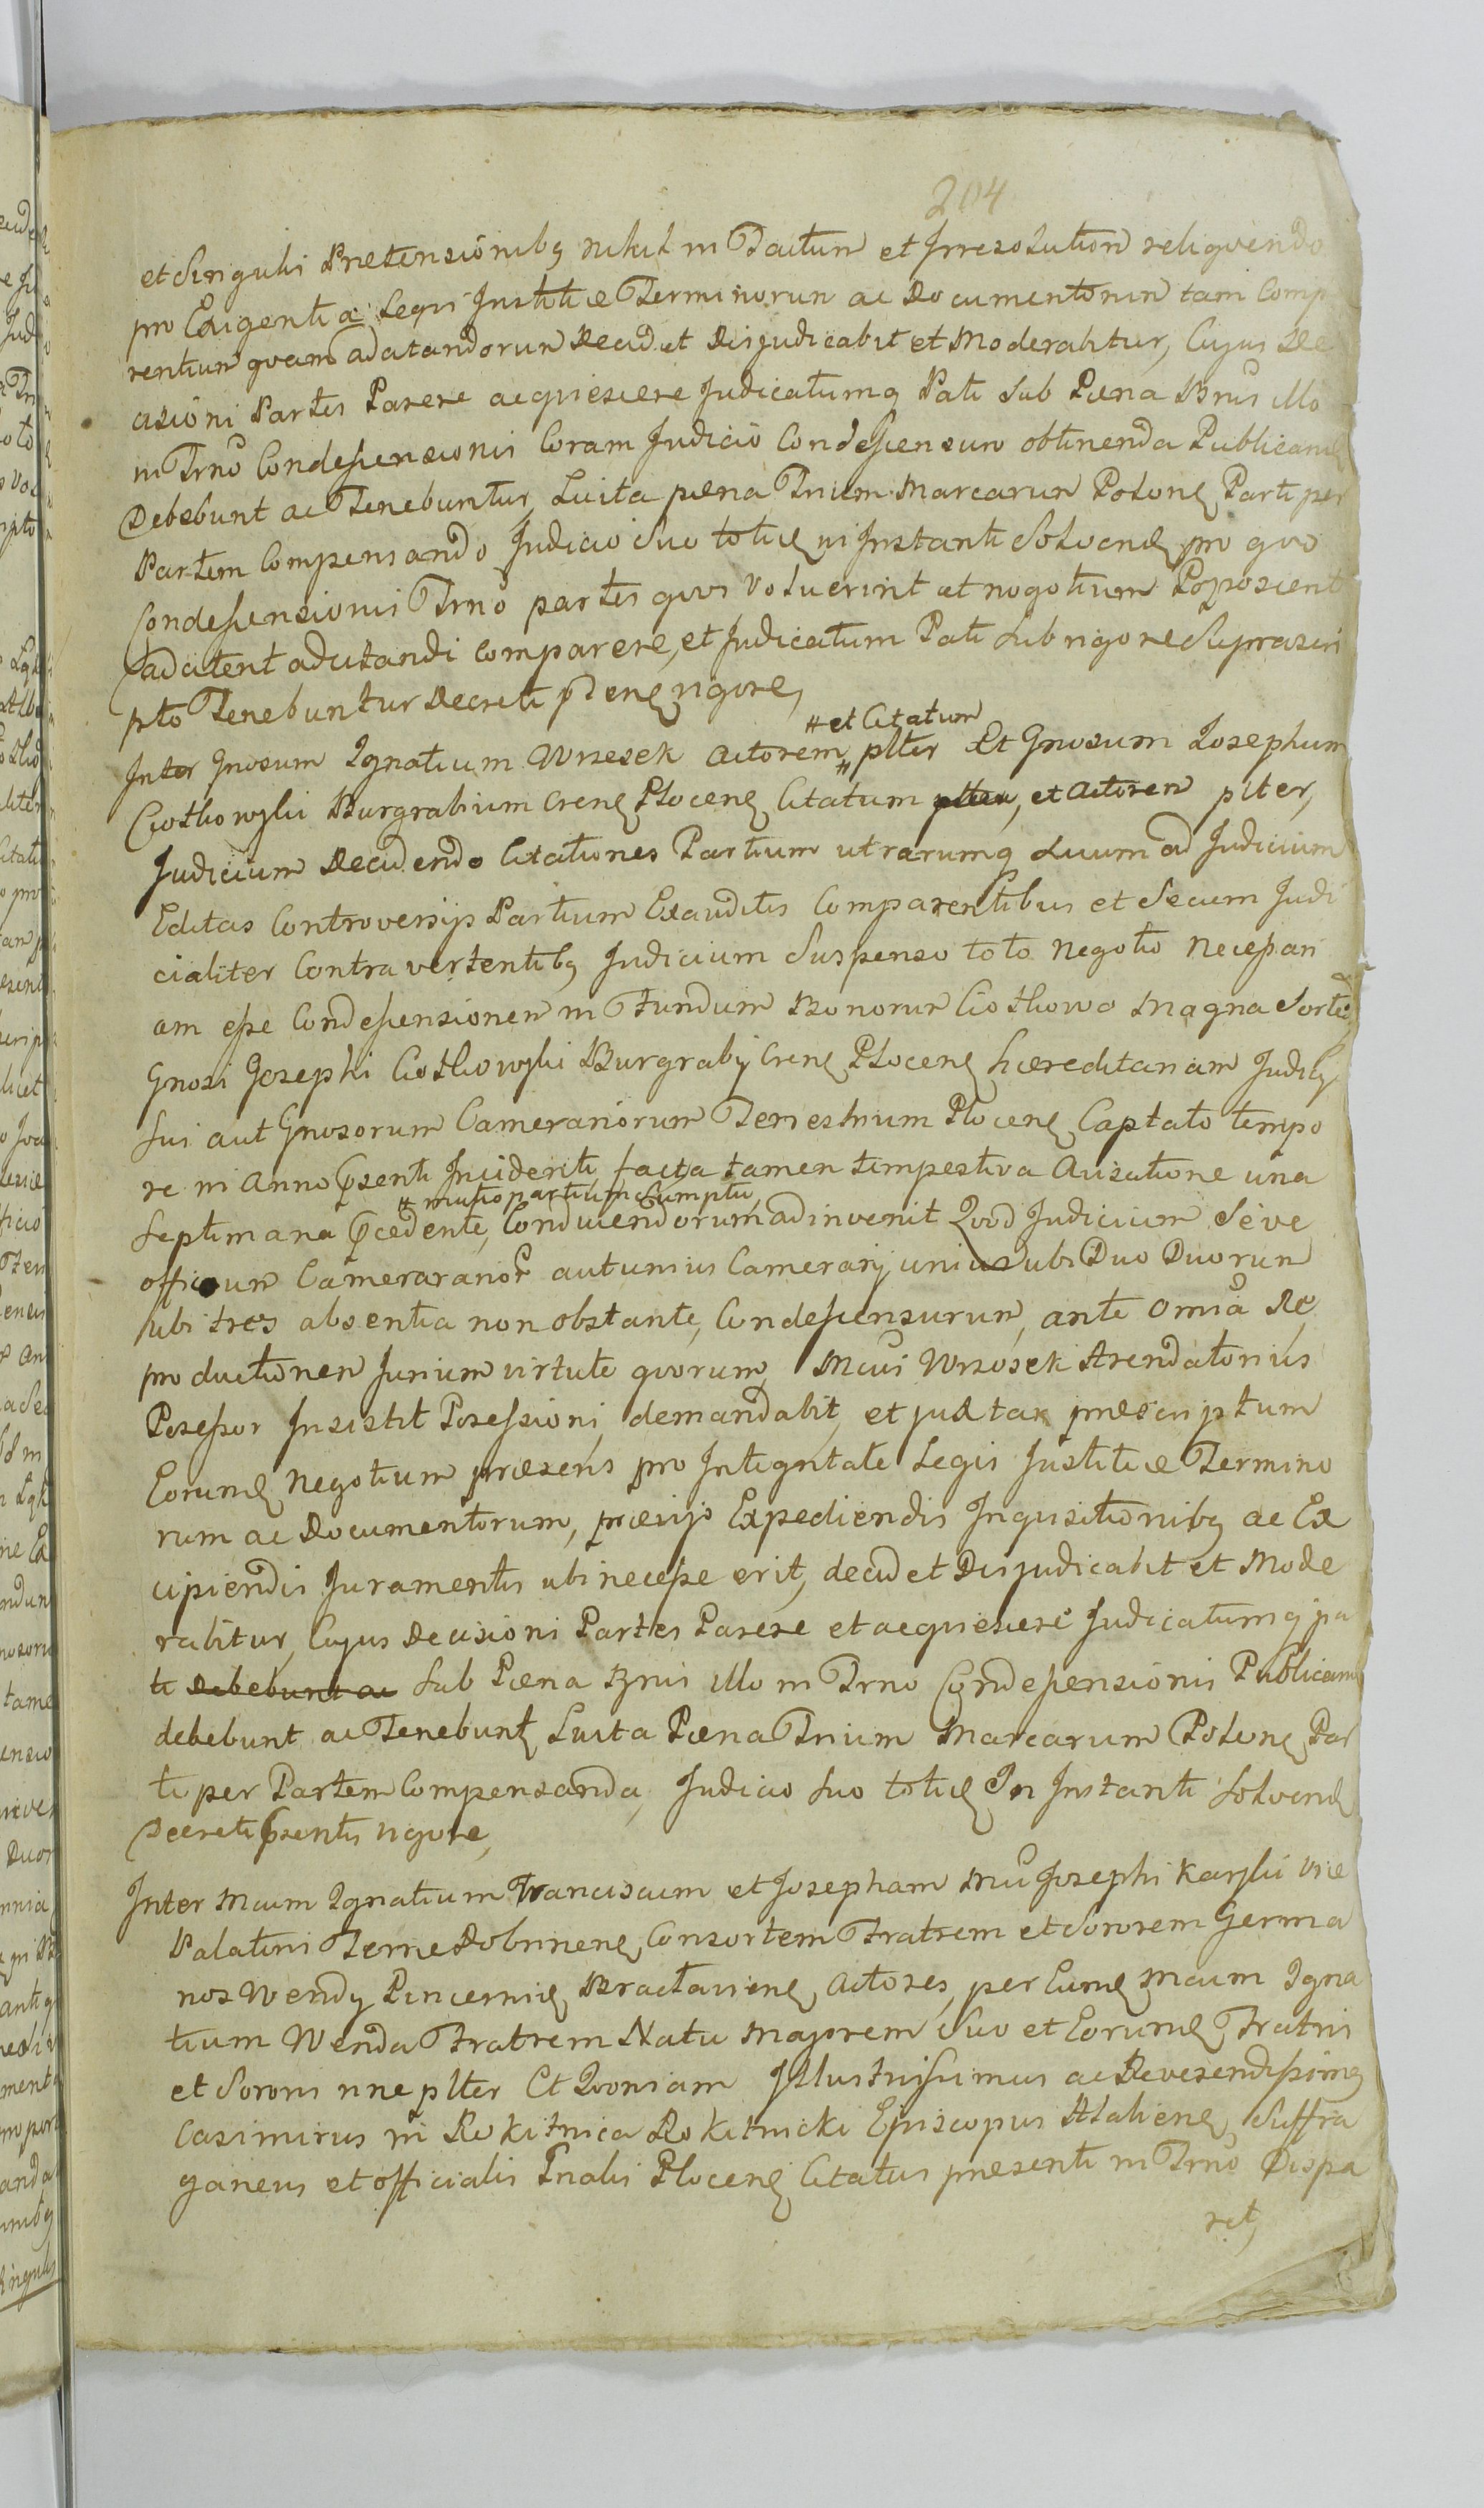 204
et Singulis Pretensionibꝫ nihil in Tacitum et Irresolutum relinquendo
pro Exigentia Legis Justitiæ Terminorum ac Documentorum tam Compa
rentium quam adcitandorum Decidet Disjudicabit et Moderabitur, Cujus De
cisioni Partes Parere acquiescere Judicatumqꝫ Pati Sub Pæna Bnis illo
in Trno Condescensionis Coram Judicio Condescensuro obtinenda Publicandꝫ
Debebunt ac Tenebuntur, Luita pæna Trium Marcarum Polonꝫ Parti per
Partem Compensando Judicio Suo totieꝫ in Instanti Solvendꝫ pro quo
Condescensionis Trno partes quos voluerint ad negotium Pprosient
adcitent adcitandi comparere, et Judicatum Pati Sub rigore Suprascri
pto Tenebuntur Decreti pntienꝫ vigore,
# et Citatum
Inter Gnosum Ignatium Wrzosek Actorem # plter Et Gnosum Josephum
Ciolkowski Burgrabium Crenꝫ Plocenꝫ Citatum plter, et Actorem plter,
Judicium Decidendo Citationes Partium utrarumqꝫ Suum ad Judicium
Editas Controversijs Partium Exauditis Comparentibus et Secum Judi
cialiter Contravertentibꝫ Judicium Suspenso toto negotio necessari
am esse Condescensionem in Fundum Bonorum Ciolkowo Magna Sortꝫ
Gnosi Josephi Ciolkowski Burgrabij Crenꝫ Plocenꝫ hæreditariam Judicij
Sui aut Gnosorum Camerariorum Terrestrium Plocenꝫ Captato tempo
re in Anno Psenti Inciderenti facta tamen tempestiva Avisatione una
# mutuo partium Sumptu,
Septimana Pcedente, # Conducendorum adinvenit Quod Judicium Seve
officium Camerararior aut unius Camerarij unius ubi Duo Duorum
ubi tres absentia non obstante, Condescensurum, ante omnia Re
productionem Jurium virtute quorum, Mcus Wrzosek Arendatorius
Possessor Insistit Possessioni, demandabit, et juxtax præscriptum
Eorumdꝫ negotium præsens pro Integritate Legis Justitiæ Termino
rum ac Documentorum, prævijs Expediendis Inquisitionibꝫ ac Ex
cipiendis Juramentis ubi necesse erit, decidet Disjudicabit et Mode
rabitur, Cujus Decisioni Partes Parere et acquiescere Judicatumqꝫ pa
ti Debebunt ac Sub Pæna Bnis illo in Trno Condescensionis Publicand
debebunt ac Tenebuntꝫ Luita Pæna Trium Marcarum Polonꝫ Par
ti per Partem Compensanda, Judicio Suo totieꝫ In Instanti Solvendꝫ
Decreti Psentis vigore,
Inter Mcum Ignatium Franciscum et Josepham Mci Josephi Karski Vice
Palatini Terræ Dobrinenꝫ Consortem Fratrem et Sororem Germa
nos Wendy Pincernidꝫ Braclavienꝫ Actores, per Eumdꝫ Mcum Igna
tium Wenda Fratrem Natu Majorem Suo et Eorumdꝫ Fratris
et Sororis nne plter Et Quoniam Illustrissimus ac Reverendissimꝫ
Casimirus in Rokitnica Rokitnicki Episcopus Atalienꝫ Suffra
ganeus et officialis Gnalis Plocenꝫ Citatus præsenti in Trno Dispa
ret,